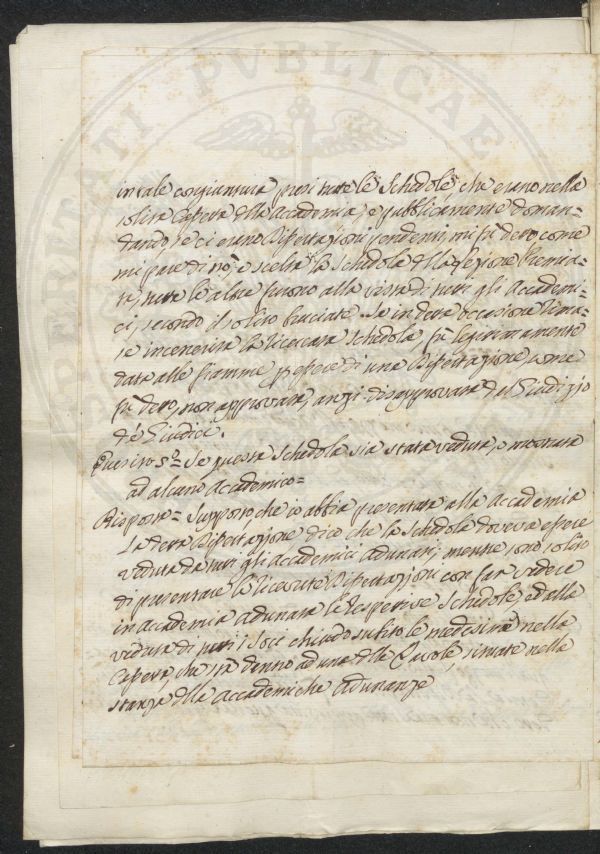 PVBLICAE
in tale congiuntura, prese tutte le Schedole, che erano nella
solita Cassetta della Accademia, e pubblicamente doman-
dando, se ci erano Dissertazioni pendenti, mi fù detto come
mi pare di nò, e scelta la Schedola della
tutte le altre furono alla vista di tutti gli Accademi-
ci, secondo il solito bruciate. Se in detta occasione rima-
se incenerita la ricercata Schedola, fù legittimamente
data alle fiamme, p essere di una Dissertazione, come
fù detto, non approvata, anzi disapprovata del Giudizio
de' Giudici.
Quesito 5.º Se questa Schedola sia stata veduta, o mostrata
ad alcuno Accademico=
Risposta= Supposto, che io abbia presentata alla Accademia
la detta Dissertazione, dico che la Schedola doveva essere
veduta da tutti gli Accademici adunati, mentre sono solito
di presentare le ricevute Dissertazioni con far vedere
in Accademia adunata le respettive Schedole, ed alla
veduta di tutti i Socj chiudo subito le medesime nella
Cassetta, che stà dentro ad una delle Tavole, situate nella
stanza delle Accademiche adunanze